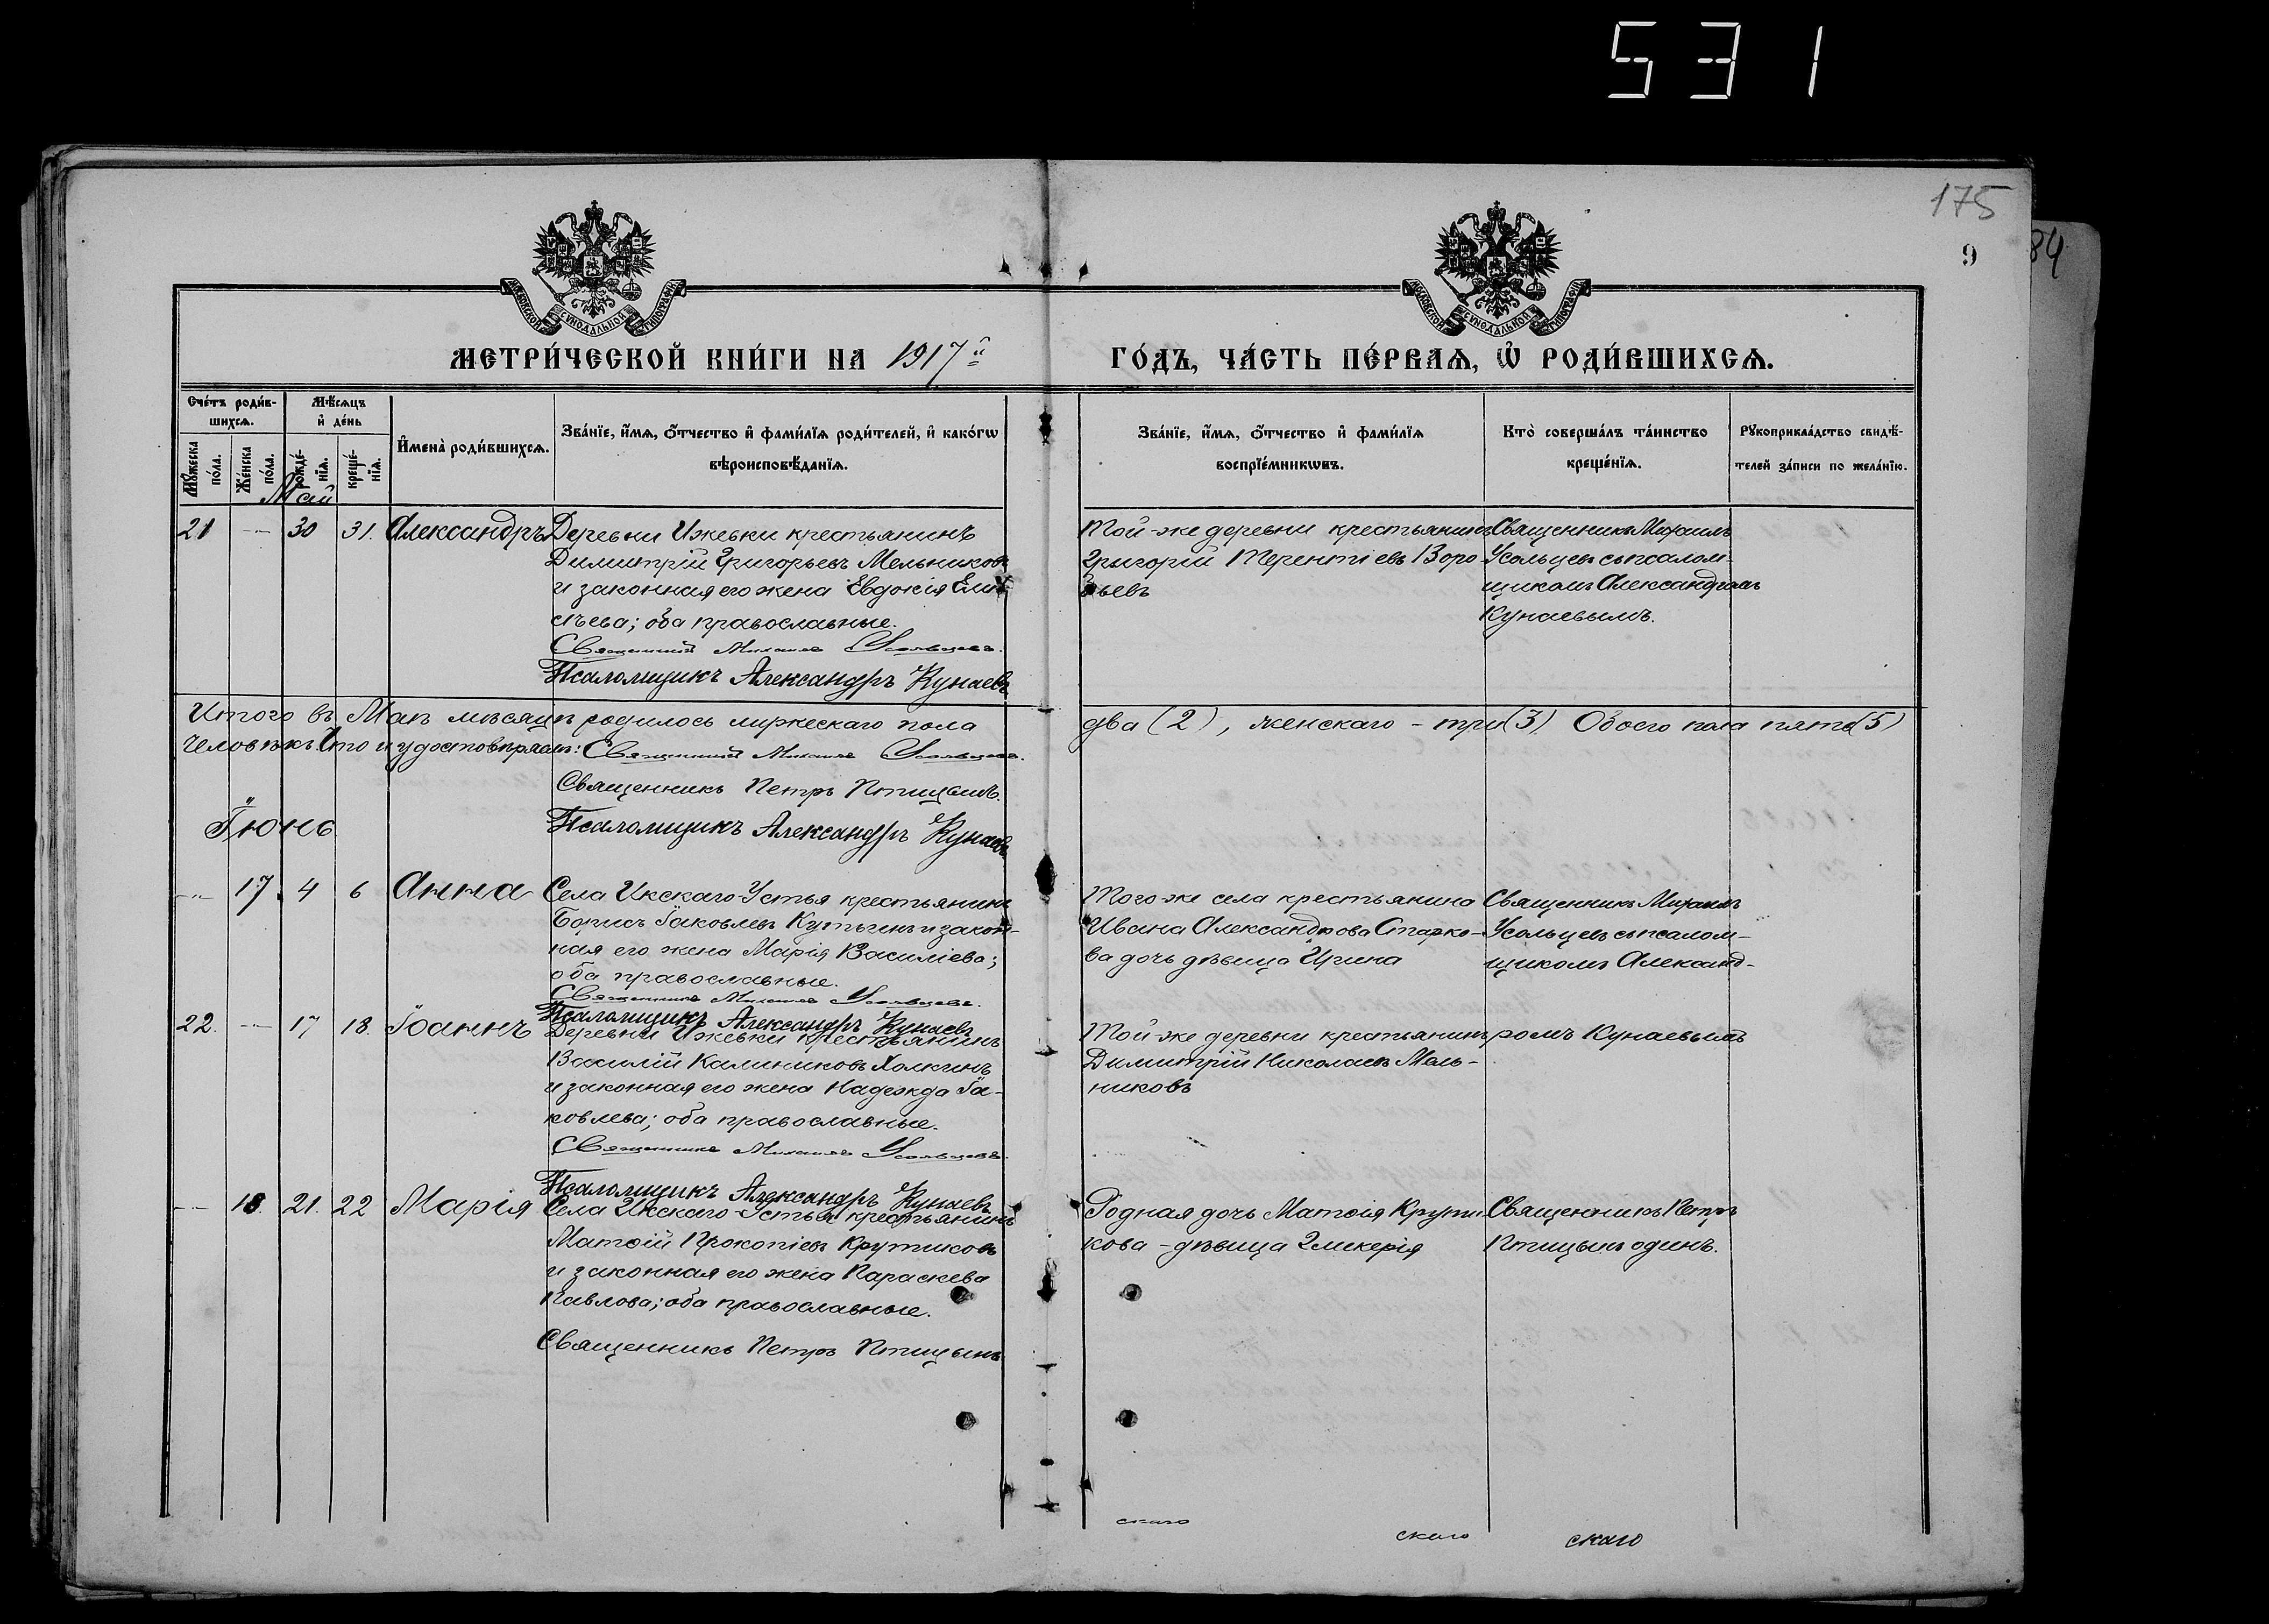 531
175
9
84
МОСКОВСКОЙ СѴНОДАЛЬНОЙ ТИПОГРАФІИ
МОСКОВСКОЙ СѴНОДАЛЬНОЙ ТИПОГРАФІИ
МЕТРИ́ЧЕСКОЙ КНИ́ГИ НА 1917й
ГО́ДЪ, ЧА́СТЬ ПЕ́РВАѦ, Ѽ РОДИ́ВШИХСѦ.
Сче́тъ роди́в-
шихсѧ.
Мѣ́сѧцъ
и҆ де́нь
Мꙋ́жеска
по́ла.
Же́нска
по́ла.
рожде́-
нїѧ.
креще́-
нїѧ.
И҆мена̀ роди́вшихсѧ.
Зва́нїе, и҆́мѧ, ѻ҆́тчество и҆ фами́лїѧ роди́телей, и҆ како́гѡ
вѣроисповѣ́данїѧ.
Зва́нїе, и҆́мѧ, ѻ҆́тчество и҆ фами́лїѧ
воспрїе́мникѡвъ.
Кто̀ соверша́лъ та́инство
креще́нїѧ.
Рꙋкоприкла́дство свидѣ́-
телей за́писи по жела́нїю.
Май
21 — 30 31. Александръ
Деревни Ижевки крестьянинъ
Димитрій Григорьевъ Мельниковъ
и законная его жена Евдокія Ели-
сѣева; оба православные.
Священникъ Михаилъ Усольцевъ.
Псаломщикъ Александръ Кунаевъ
Той-же деревни крестьянинъ
Григорій Терентіевъ Воро-
бьевъ
Священникъ Михаилъ
Усольцевъ съ псалом-
щикомъ Александромъ
Кунаевымъ.
Итого въ Маѣ мѣсяцѣ родилось мужескаго пола
два (2), женскаго – три (3) Обоего пола пять (5)
человѣкъ. Что и удостовѣряемъ: Священникъ Михаилъ Усольцевъ.
Священникъ Петръ Птицынъ.
Псаломщикъ Александръ Кунаевъ
Іюнь
— 17. 4 6 Анна
Села Икскаго-Устья крестьянинъ
Борисъ Іаковлевъ Кутыгинъ и закон-
ная его жена Марія Василіева;
оба православные.
Священникъ Михаилъ Усольцевъ.
Псаломщикъ Александръ Кунаевъ
Того-же села крестьянина
Ивана Александрова Старко-
ва дочь дѣвица Ирина
Священникъ Михаилъ
Усольцевъ съ псалом-
щикомъ Александ-
22. — 17 18. Іоаннъ
Деревни Ижевки крестьянинъ
Василій Калиниковъ Холкинъ
и законная его жена Надежда Іа-
ковлева; оба православные.
Священникъ Михаилъ Усольцевъ.
Псаломщикъ Александръ Кунаевъ
Той-же деревни крестьянинъ
Димитрій Николаевъ Мель-
никовъ
ромъ Кунаевымъ
— 18. 21. 22 Марія
Села Икскаго-Устья крестьянинъ
Матѳій Прокопіевъ Крутиковъ
и законная его жена Параскева
Павлова; оба православные.
Священникъ Петръ Птицынъ
Родная дочь Матѳія Крути-
кова – дѣвица Гликерія
Священникъ Петръ
Птицынъ одинъ.
скаго
скаго
скаго